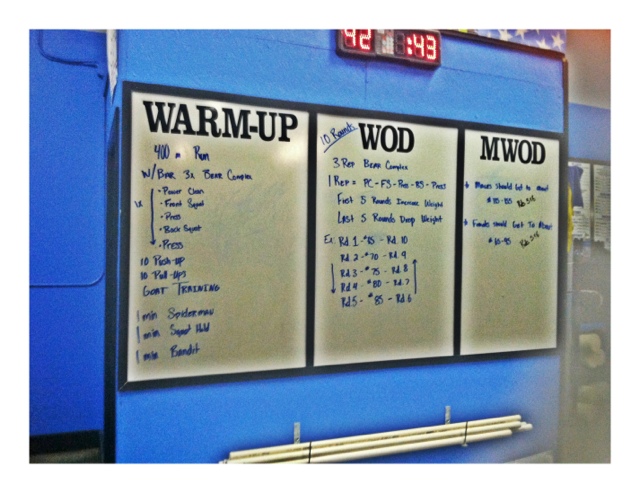 42 :43
WARM-UP
400 m Run
w/ Bar 3x Bear Complex
1x
• Power Clean
• Front Squat
• Press
• Back Squat
• Press
10 Push-up
10 Pull-ups
Goat Training
1 min Spiderman
1 min Squat Hold
1 min Bandit
10 Rounds
WOD
3 Rep Bear Complex
1 Rep = PC - FS - Pre - BS - Press
First 5 Rounds Increase Weight
Last 5 Rounds Drop Weight
Ex: Rd 1 - #65 - Rd. 10
Rd. 2 - #70 - Rd. 9
Rd. 3 - #75 - Rd. 8
Rd. 4 - #80 - Rd. 7
Rd. 5 - #85 - Rd. 6
MWOD
should Get to about
should Get To About